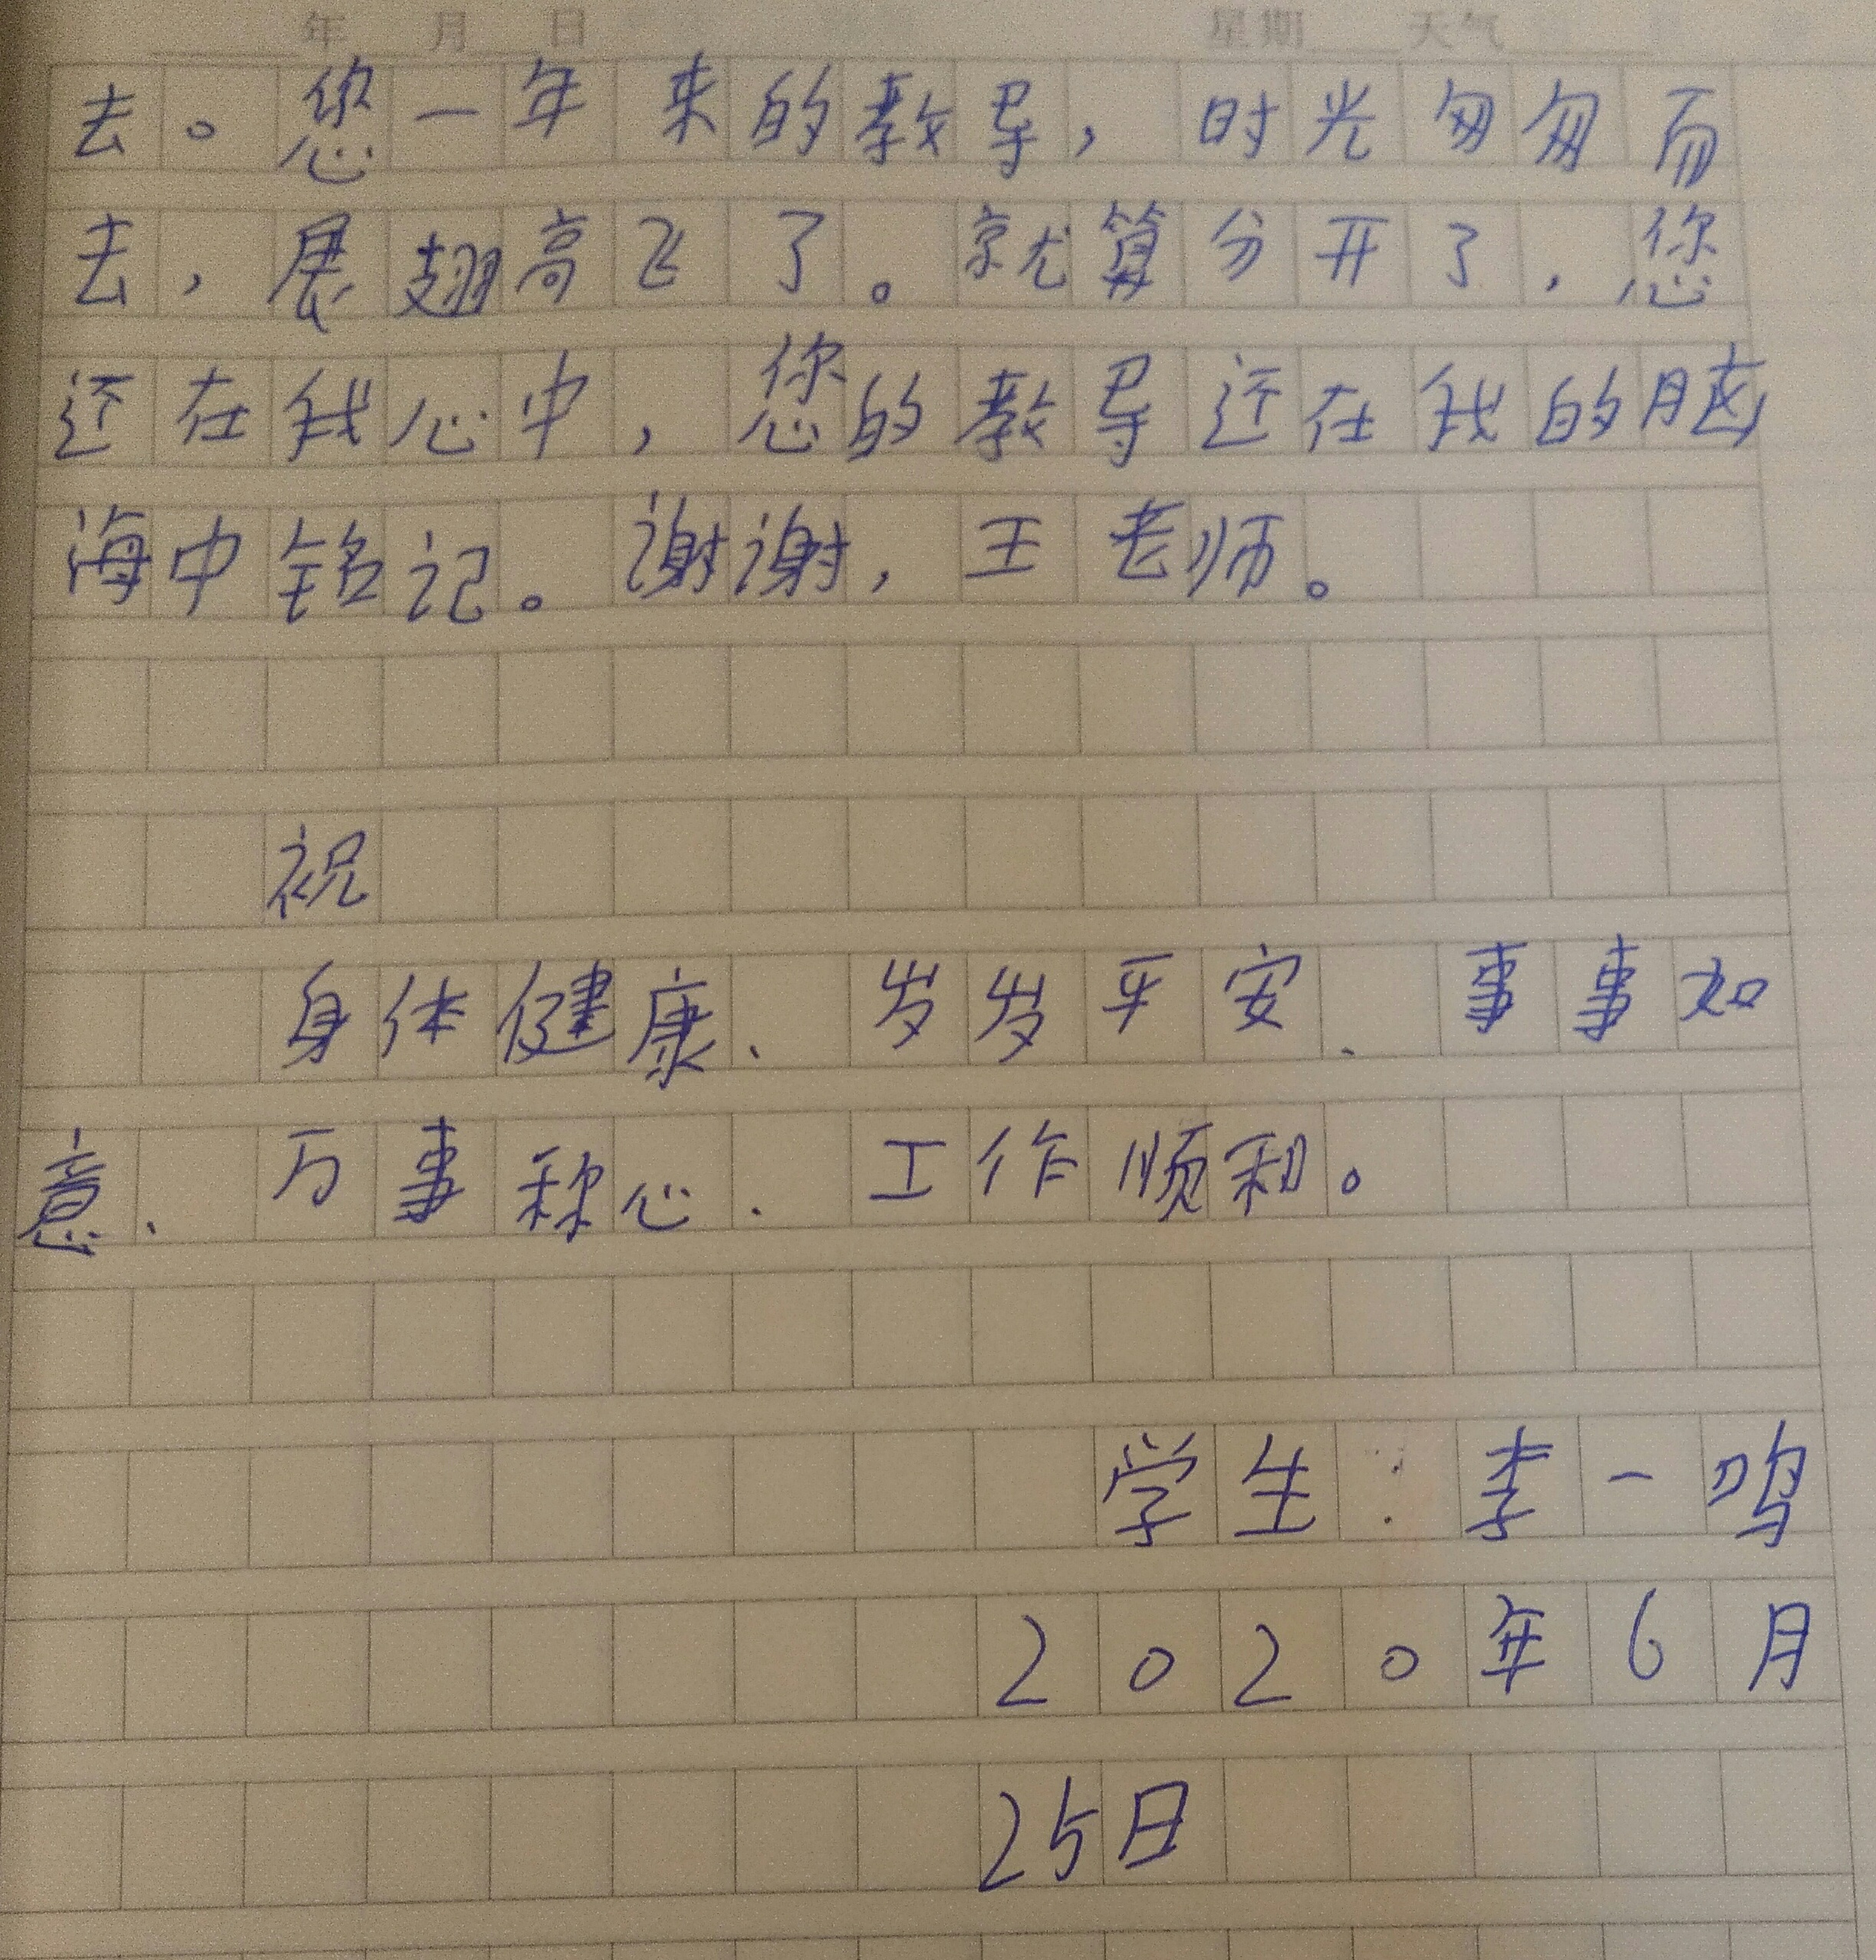 年 月 日 星期 天气
去。您一年来的教导，时光匆匆而
去，展翅高飞了。就算分开了，您
还在我心中，您的教导还在我的脑
海中铭记。谢谢，王老师。
祝
身体健康、岁岁平安、事事如
意、万事称心、工作顺和。
学生：李一鸣
2020年6月
25日